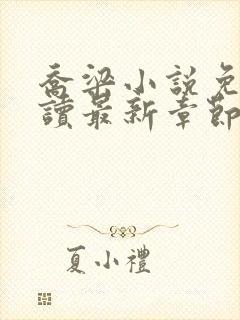 喬梁小說免
讀最新章節
夏小禮